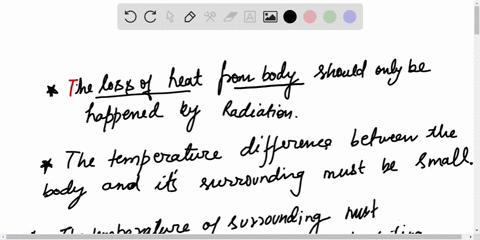 * The loss of heat from body should only be
happened by Radiation.
* The temperature difference between the
body and it's surrounding must be small.
* The temperature of surrounding must